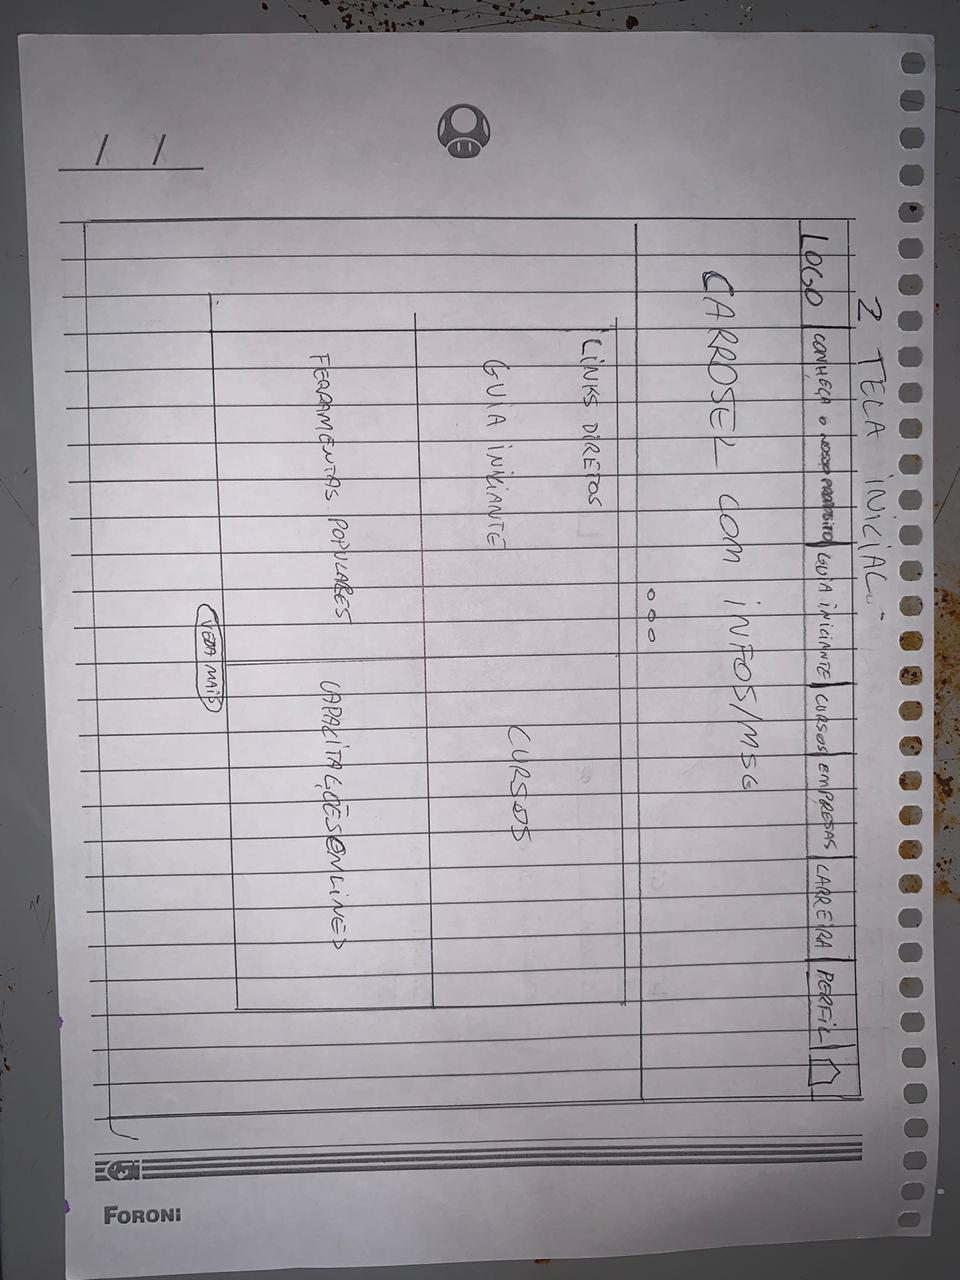 2 TELA INICIAL
LOGO CONHEÇA O NOSSO PROPÓSITO GUIA INICIANTE CURSOS EMPRESAS CARREIRA PERFIL
CARROSEL COM INFOS/MSG
LINKS DIRETOS
CURSOS
GUIA INICIANTE
FERRAMENTAS POPULARES CAPACITAÇÕES ONLINES
VEJA MAIS
FORONI